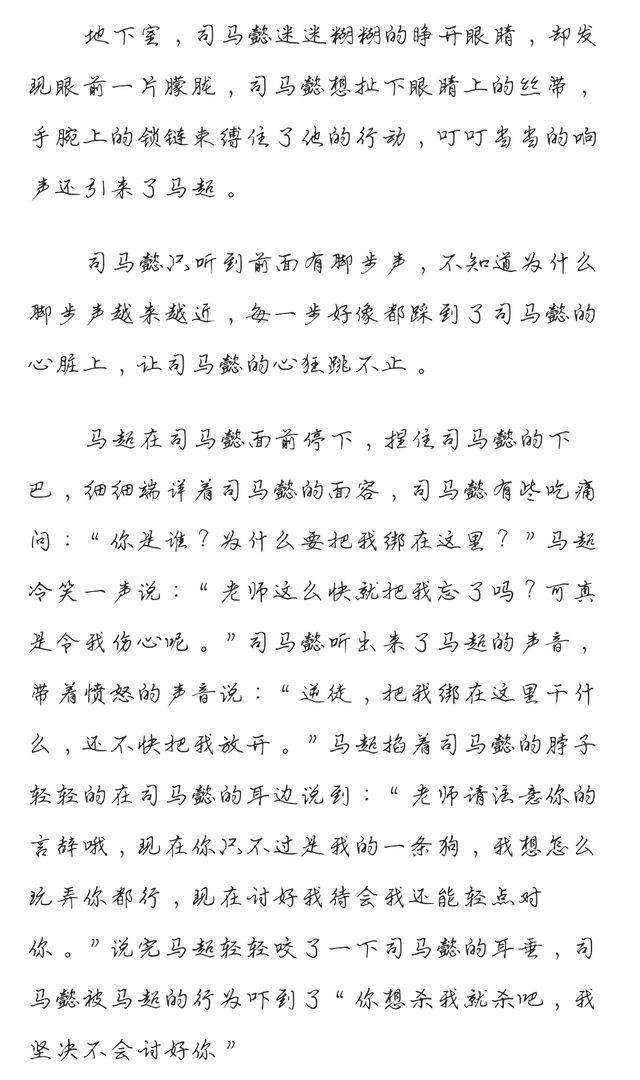 地下室，司马懿迷迷糊糊的睁开眼睛，却发
现眼前一片朦胧，司马懿想扯下眼睛上的丝带，
手腕上的锁链束缚住了他的行动，叮叮当当的响
声还引来了马超。
司马懿只听到前面有脚步声，不知道为什么
脚步声越来越近，每一步好像都踩到了司马懿的
心脏上，让司马懿的心狂跳不止。
马超在司马懿面前停下，捏住司马懿的下
巴，细细端详着司马懿的面容，司马懿有些吃痛
问：“你是谁？为什么要把我绑在这里？”马超
冷笑一声说：“老师这么快就把我忘了吗？可真
是令我伤心呢。”司马懿听出来了马超的声音，
带着愤怒的声音说：“逆徒，把我绑在这里干什
么，还不快把我放开。”马超掐着司马懿的脖子
轻轻的在司马懿的耳边说到：“老师请注意你的
言辞哦，现在你只不过是我的一条狗，我想怎么
玩弄你都行，现在讨好我待会我还能轻点对
你。”说完马超轻轻咬了一下司马懿的耳垂，司
马懿被马超的行为吓到了“你想杀我就杀吧，我
坚决不会讨好你”